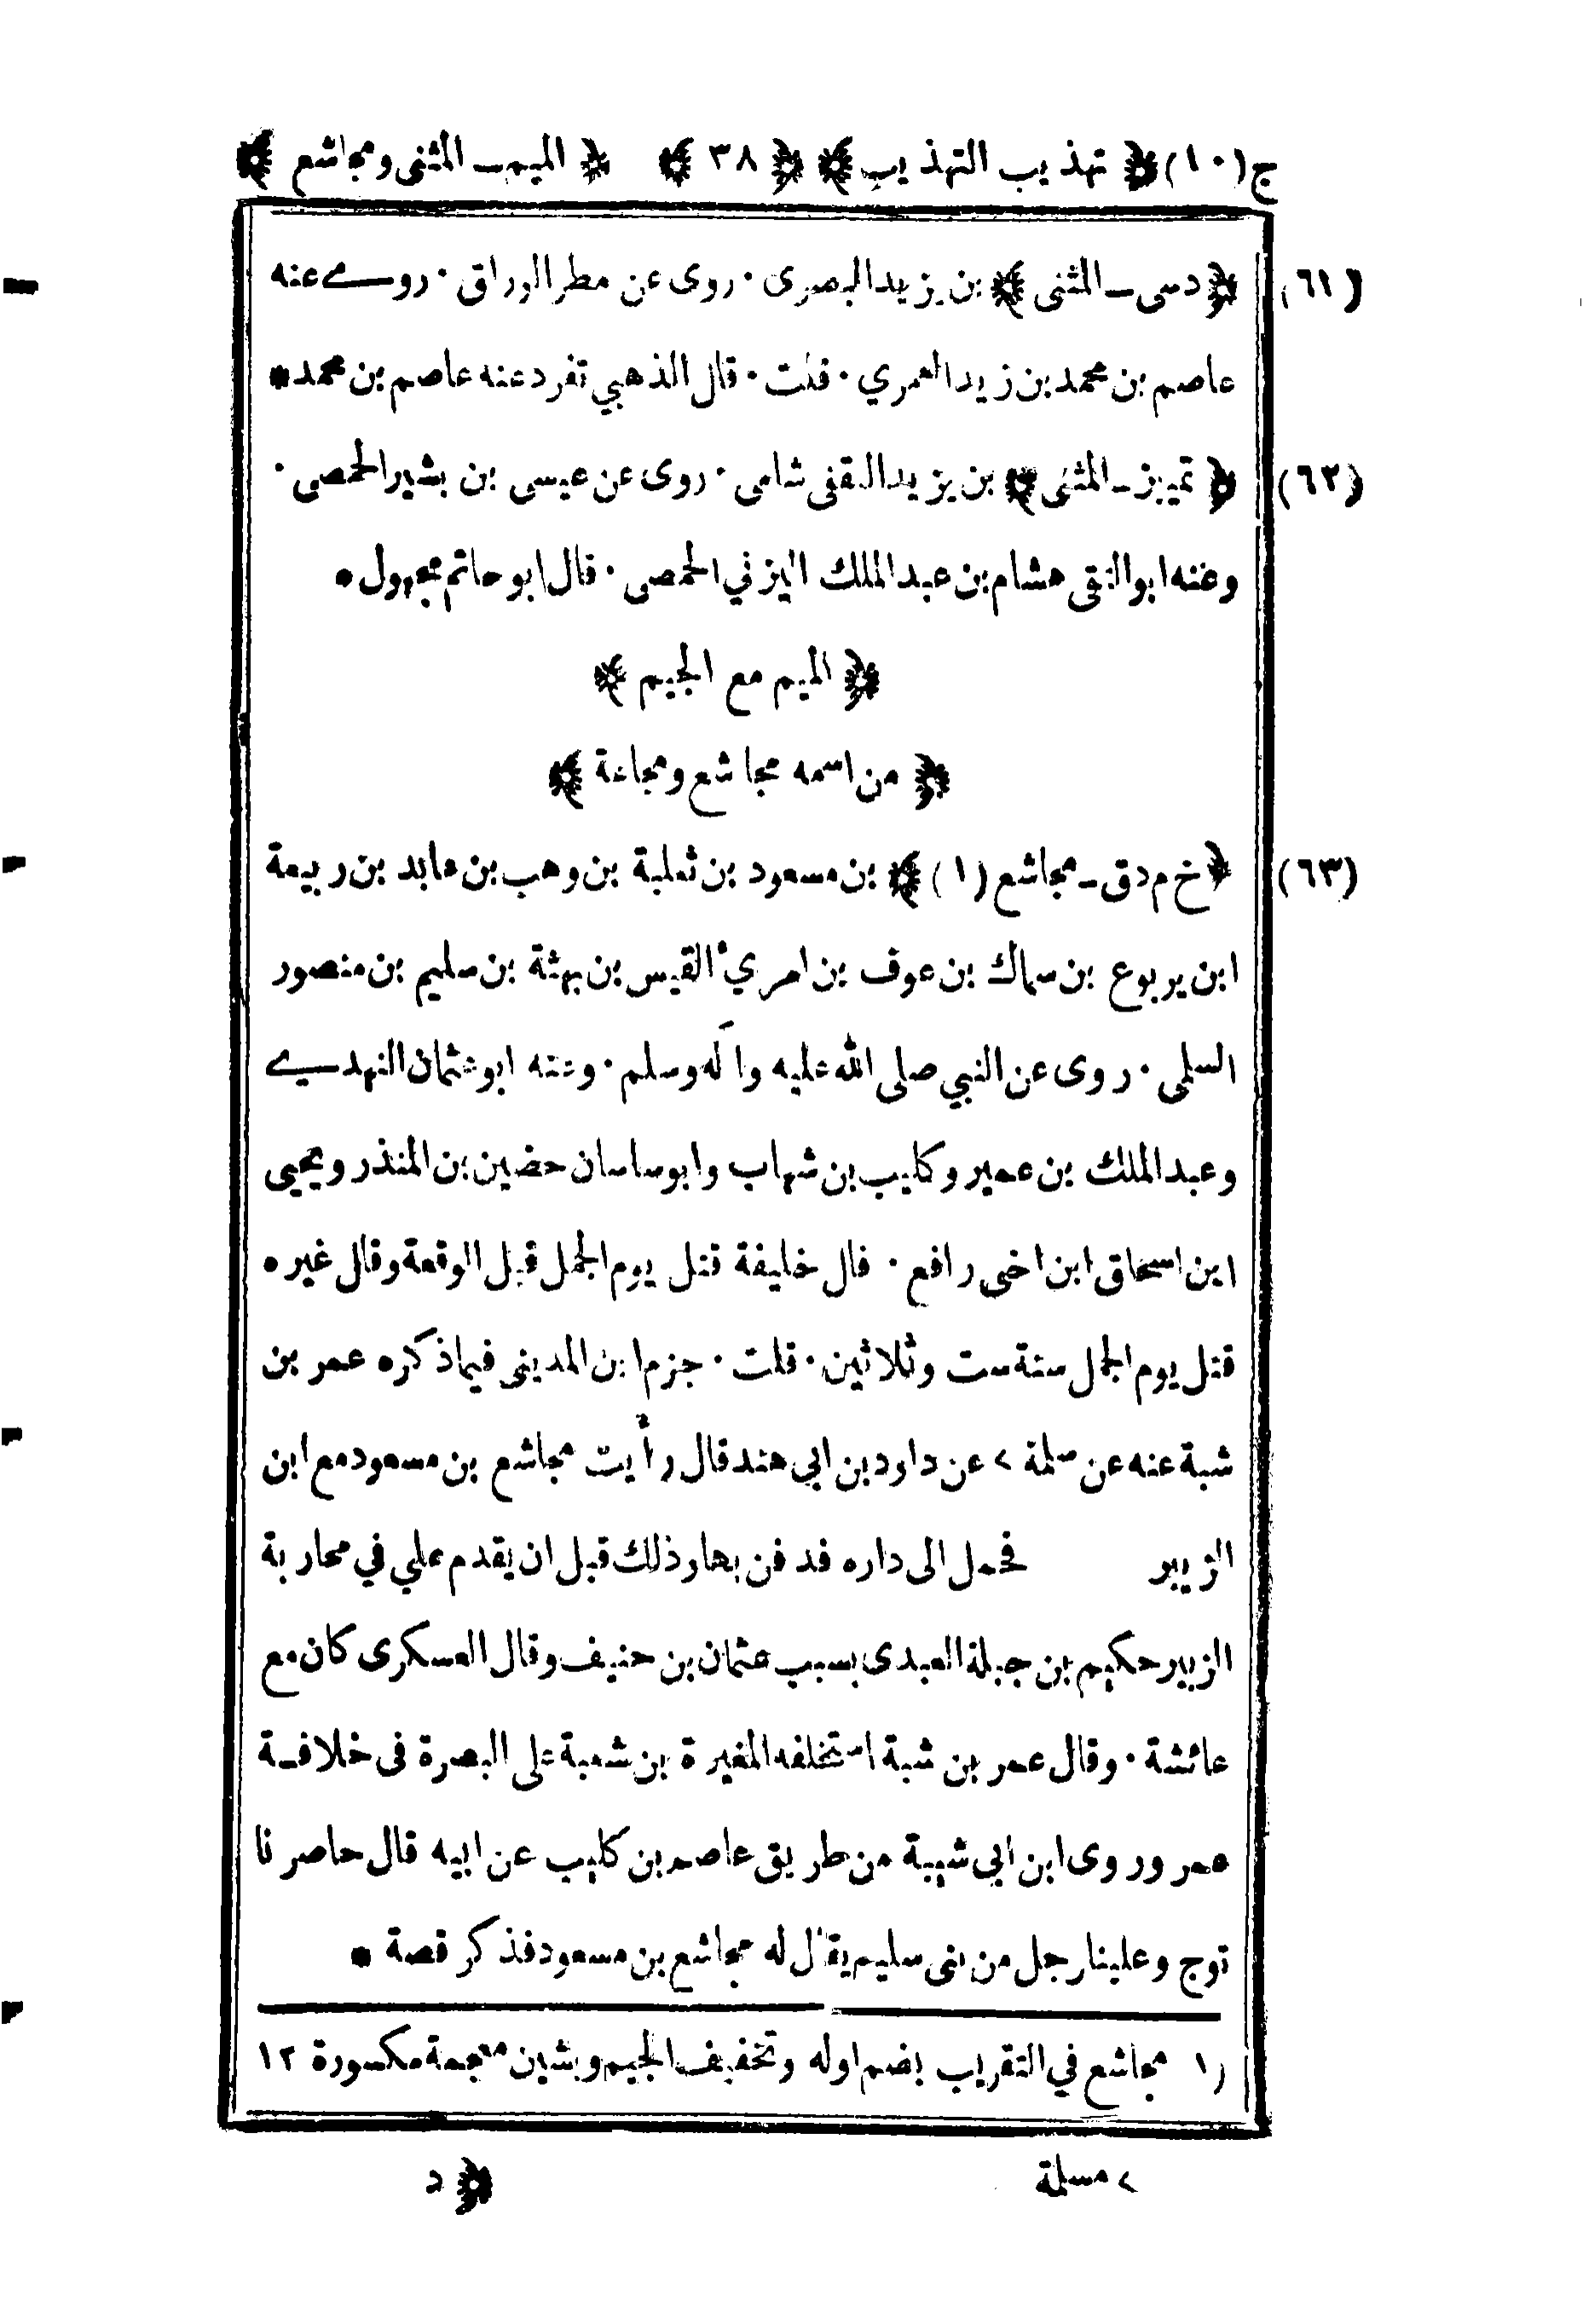 ج (١٠) ﴿ تهذيب التهذيب ﴾ ﴿ ٣٨ ﴾ ﴿ الميم ـ المثنى ومجاشع ﴾
(٦١) ﴿ دسى ـ المثنى ﴾ بن يزيد البصرى · روى عن مطر الوراق · روى عنه
عاصم بن محمد بن زيد العمري · قلت · قال الذهبي تفرد عنه عاصم بن محمد *
(٦٢) ﴿ تمييز ـ المثنى ﴾ بن يزيد الثقفى شامى · روى عن عيسى بن بشير الحمصى ·
وعنه ابو التقى هشام بن عبد الملك اليزني الحمصى · قال ابو حاتم مجهول *
﴿ الميم مع الجيم ﴾
﴿ من اسمه مجاشع ومجاعة ﴾
(٦٣) ﴿ خ م د ق ـ مجاشع (١) ﴾ بن مسعود بن ثعلبة بن وهب بن عابد بن ربيعة
ابن يربوع بن سماك بن عوف بن امرئ القيس بن بهثة بن سليم بن منصور
السلمى · روى عن النبي صلى الله عليه وآله وسلم · وعنه ابو عثمان النهدي
وعبد الملك بن عمير وكليب بن شهاب وابو ساسان حضين بن المنذر ويحيى
ابن اسحاق ابن اخى رافع · قال خليفة قتل يوم الجمل قبل الوقعة وقال غيره
قتل يوم الجمل سنة ست وثلاثين · قلت · جزم ابن المدينى فيما ذكره عمر بن
شبة عنه عن سلمة ٢ عن داود بن ابي هند قال رأيت مجاشع بن مسعود مع ابن
الزبير فحمل الى داره فدفن بها وذلك قبل ان يقدم علي في محاربة
الزبير حكيم بن جبلة العبدى بسبب عثمان بن حنيف وقال العسكرى كان مع
عائشة · وقال عمر بن شبة استخلفه المغيرة بن شعبة على البصرة فى خلافة
عمر وروى ابن ابي شيبة من طريق عاصم بن كليب عن ابيه قال حاصرنا
توج وعلينا رجل من بنى سليم يقال له مجاشع بن مسعود فذكر قصة *
(١ مجاشع في التقريب بضم اوله وتخفيف الجيم وبشين معجمة مكسورة ١٢
٢ مسلمة
﴿ د